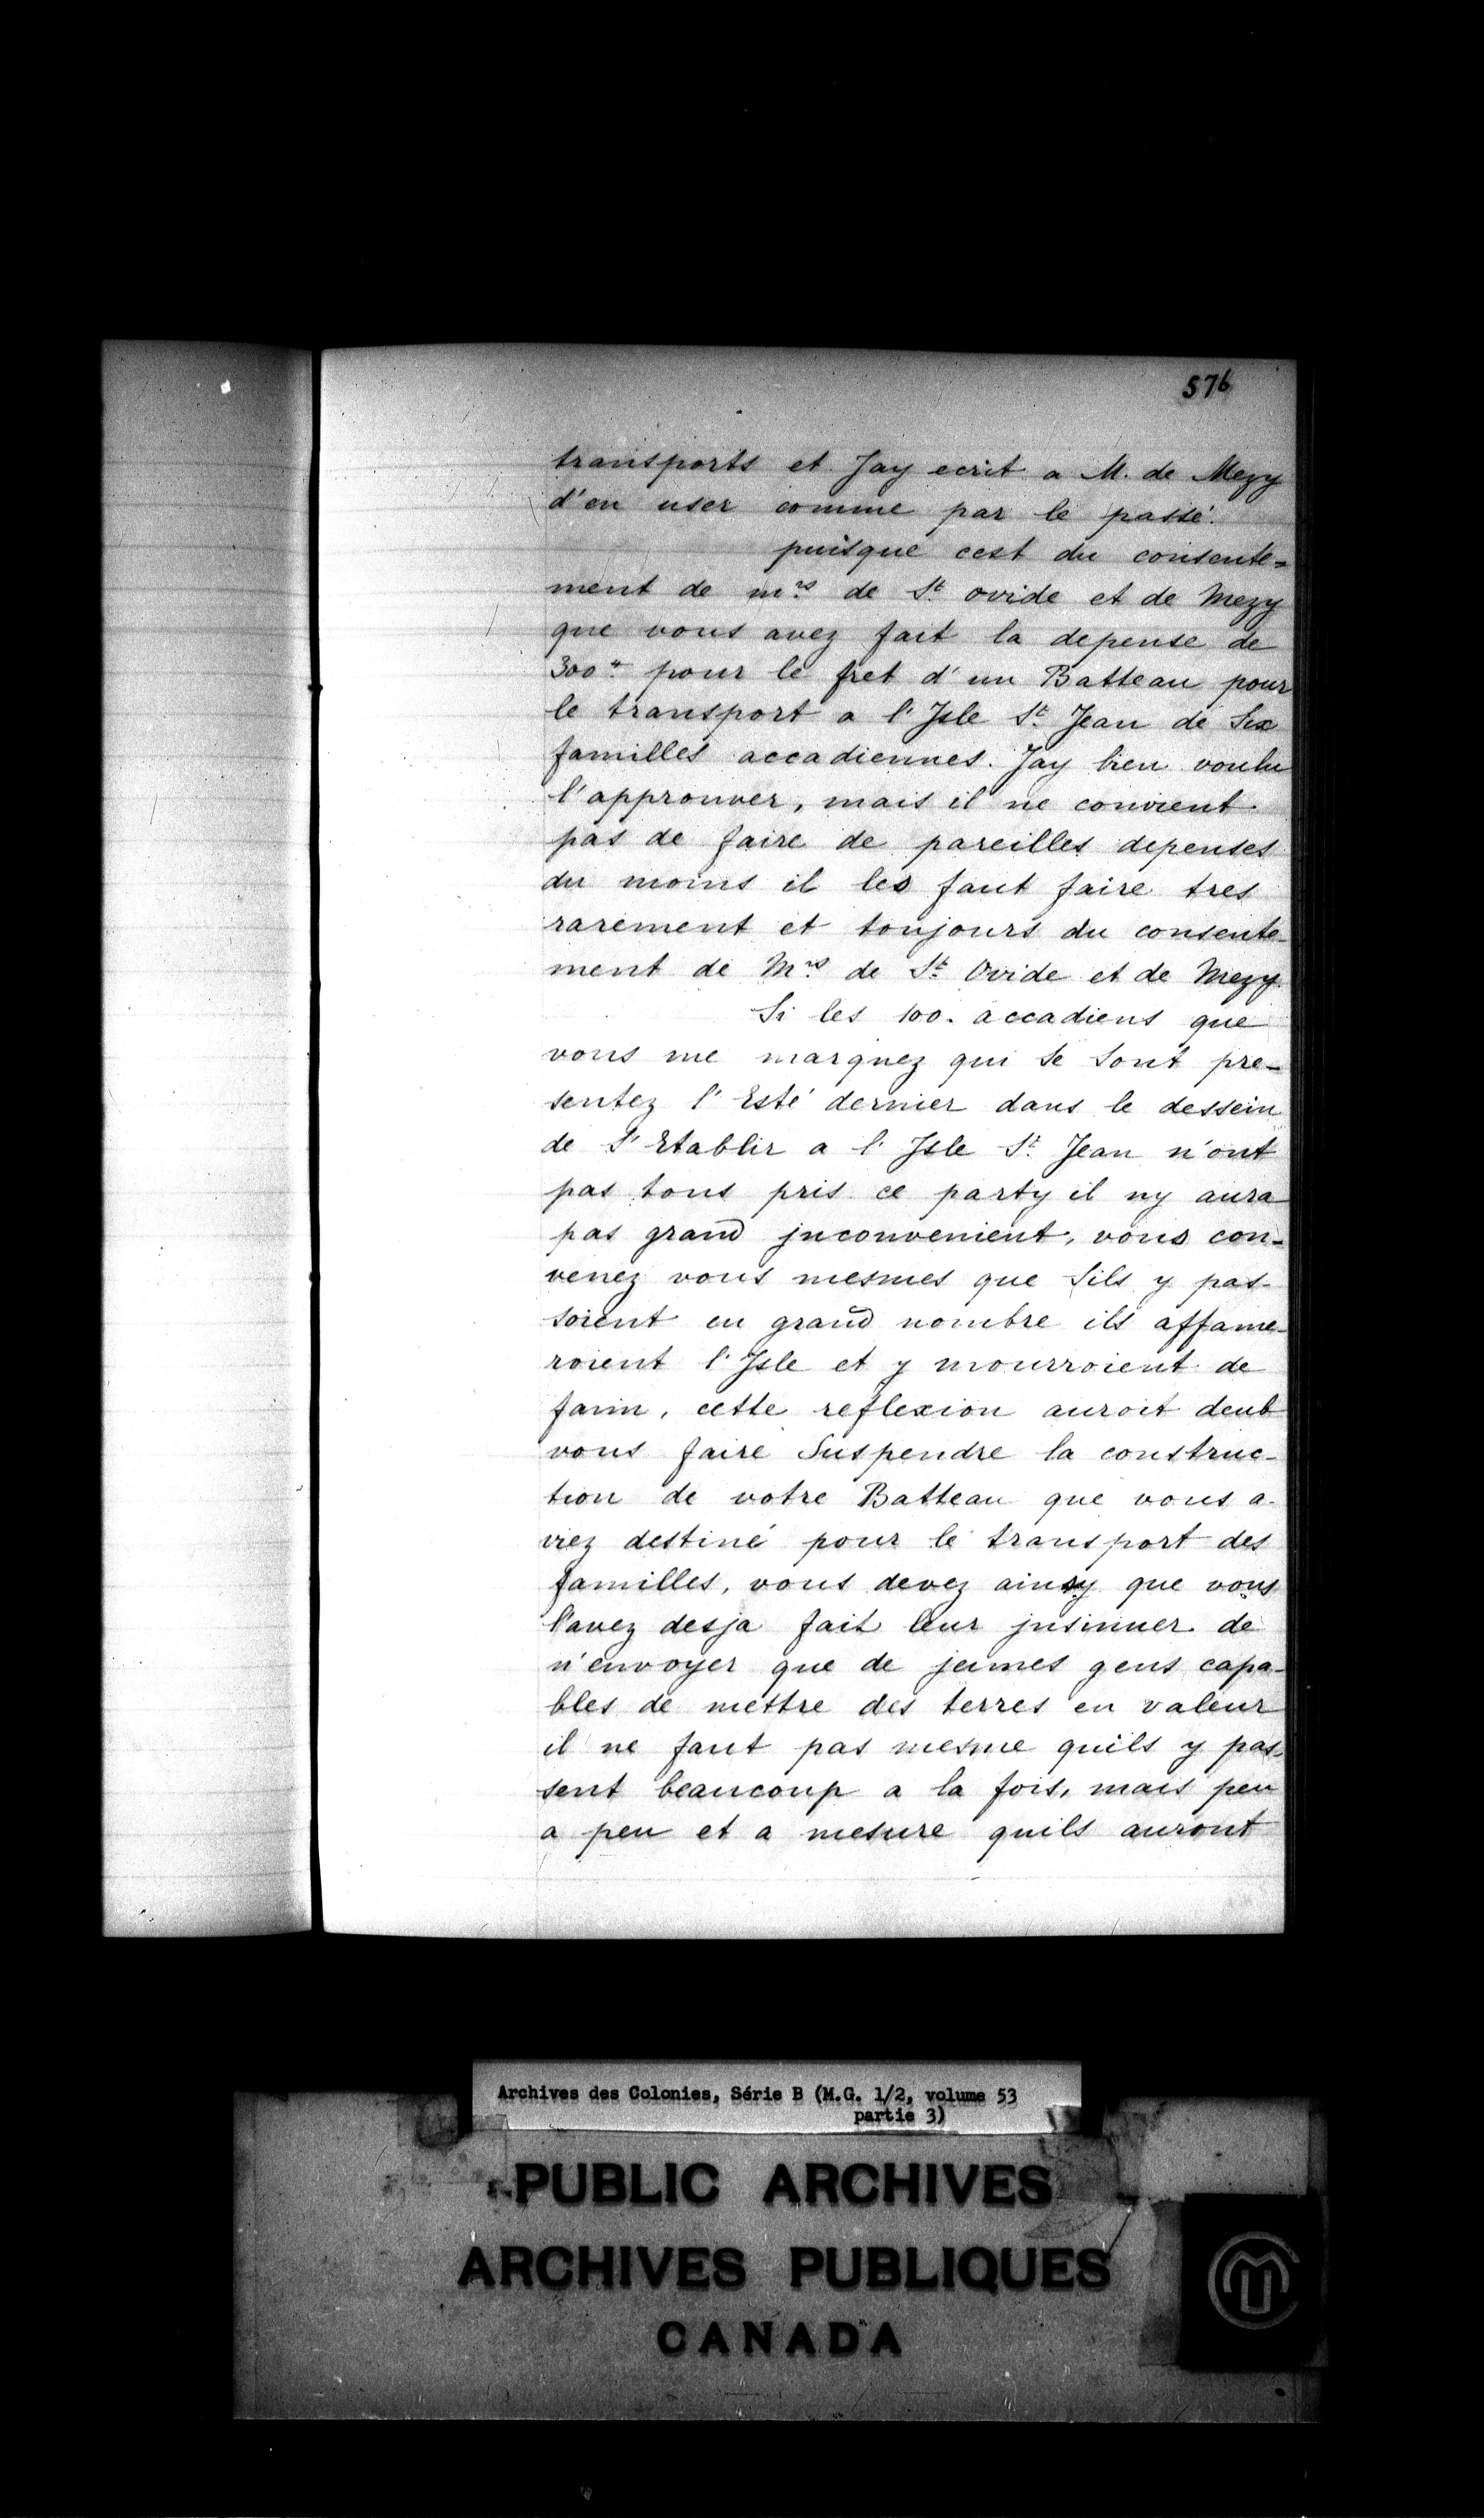 576
transports et Jay ecrit a M. de Mezy
d'en user comme par le passé.
puisque cest du consente=
ment de mrs de St ovide et de Mezy
que vous avez fait la depense de
300# pour le fret d'un Batteau pour
le transport a l'Isle St Jean de Six
familles accadiennes. Jay bien voulu
l'approuver, mais il ne convient
pas de faire de pareilles depenses
du moins il les faut faire tres
rarement et toujours du consente-
ment de Mrs de St Ovide et de Mezy.
Si les 100. accadiens que
vous me marquez qui se sont pre-
sentez l'Esté dernier dans le dessein
de S'Etablir a l'Isle St Jean n'ont
pas tous pris ce party il ny aura
pas grand jnconvenient, vous con-
venez vous mesmes que Sils y pas-
soient en grand nombre ils affame-
roient l'Isle et y mourroient de
faim, cette reflexion auroit deub
vous faire Suspendre la construc-
tion de votre Batteau que vous a-
viez destiné pour le transport des
familles, vous devez ainsy que vous
l'avez desja fait leur jnsinuer de
n'envoyer que de jeunes gens capa-
bles de mettre des terres en valeur
il ne faut pas mesme quils y pas-
sent beaucoup a la fois, mais peu
a peu et a mesure quils auront
Archives des Colonies, Série B (M.G. 1/2, volume 53
partie 3)
PUBLIC ARCHIVES
ARCHIVES PUBLIQUES
CANADA